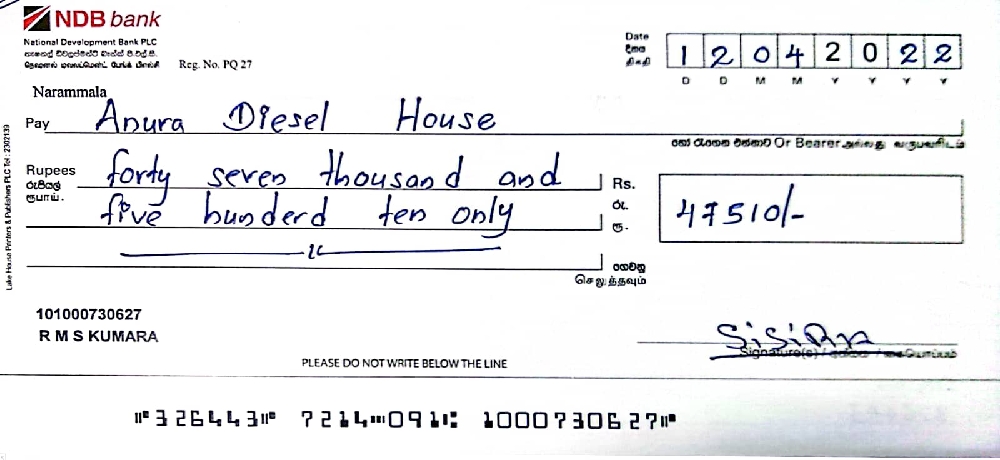 NDB bank
National Development Bank PLC
Reg. No. PQ 27
Narammala
Date
දිනය
திகதி
1 2 0 4 2 0 2 2
D D M M Y Y Y Y
Pay Anura Diesel House
හෝ රැගෙන එන්නාට Or Bearer அல்லது வருபவரிடம்
Rupees forty seven thousand and
රුපියල්
ரூபாய். five hunderd ten only
Rs.
රු.
ரூ.
47510/-
ගෙවනු
செலுத்தவும்
101000730627
R M S KUMARA
Signature(s)
PLEASE DO NOT WRITE BELOW THE LINE
⑈326443⑈ 7214⑉091⑆ 1000730627⑈
Lake House Printers & Publishers PLC Tel : 2302139